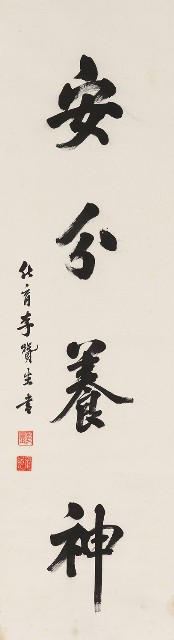 安分養神
化育李贊生書